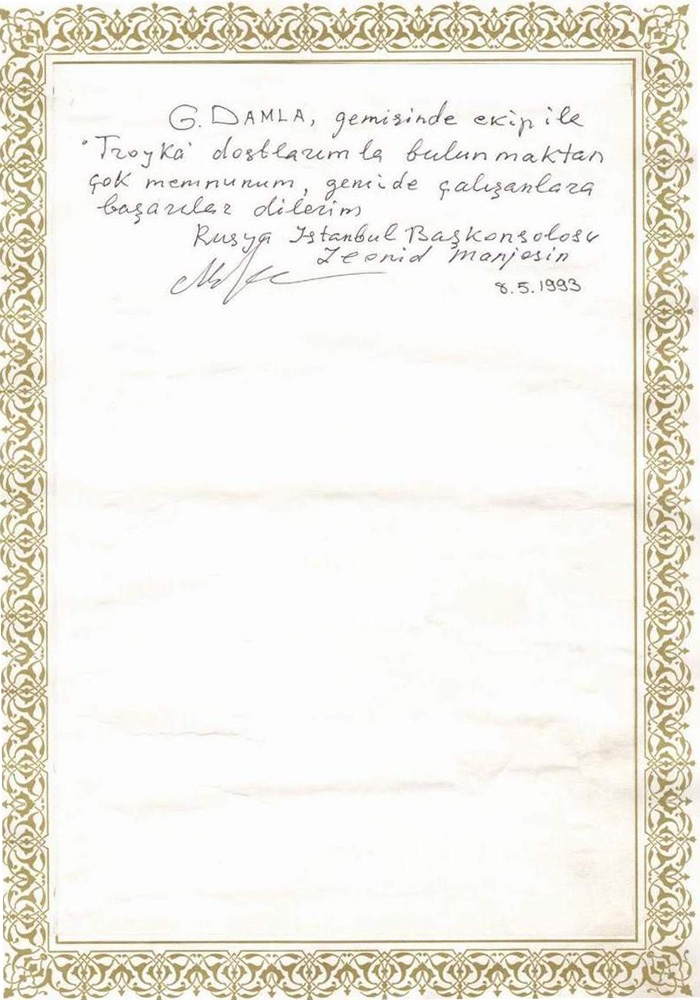 G. DAMLA, gemisinde ekip ile
"Troyka" dostlarımla bulunmaktan
çok memnunum, gemide çalışanlara
başarılar dilerim
Rusya İstanbul Başkonsolosu
Leonid Manjosin
8.5.1993